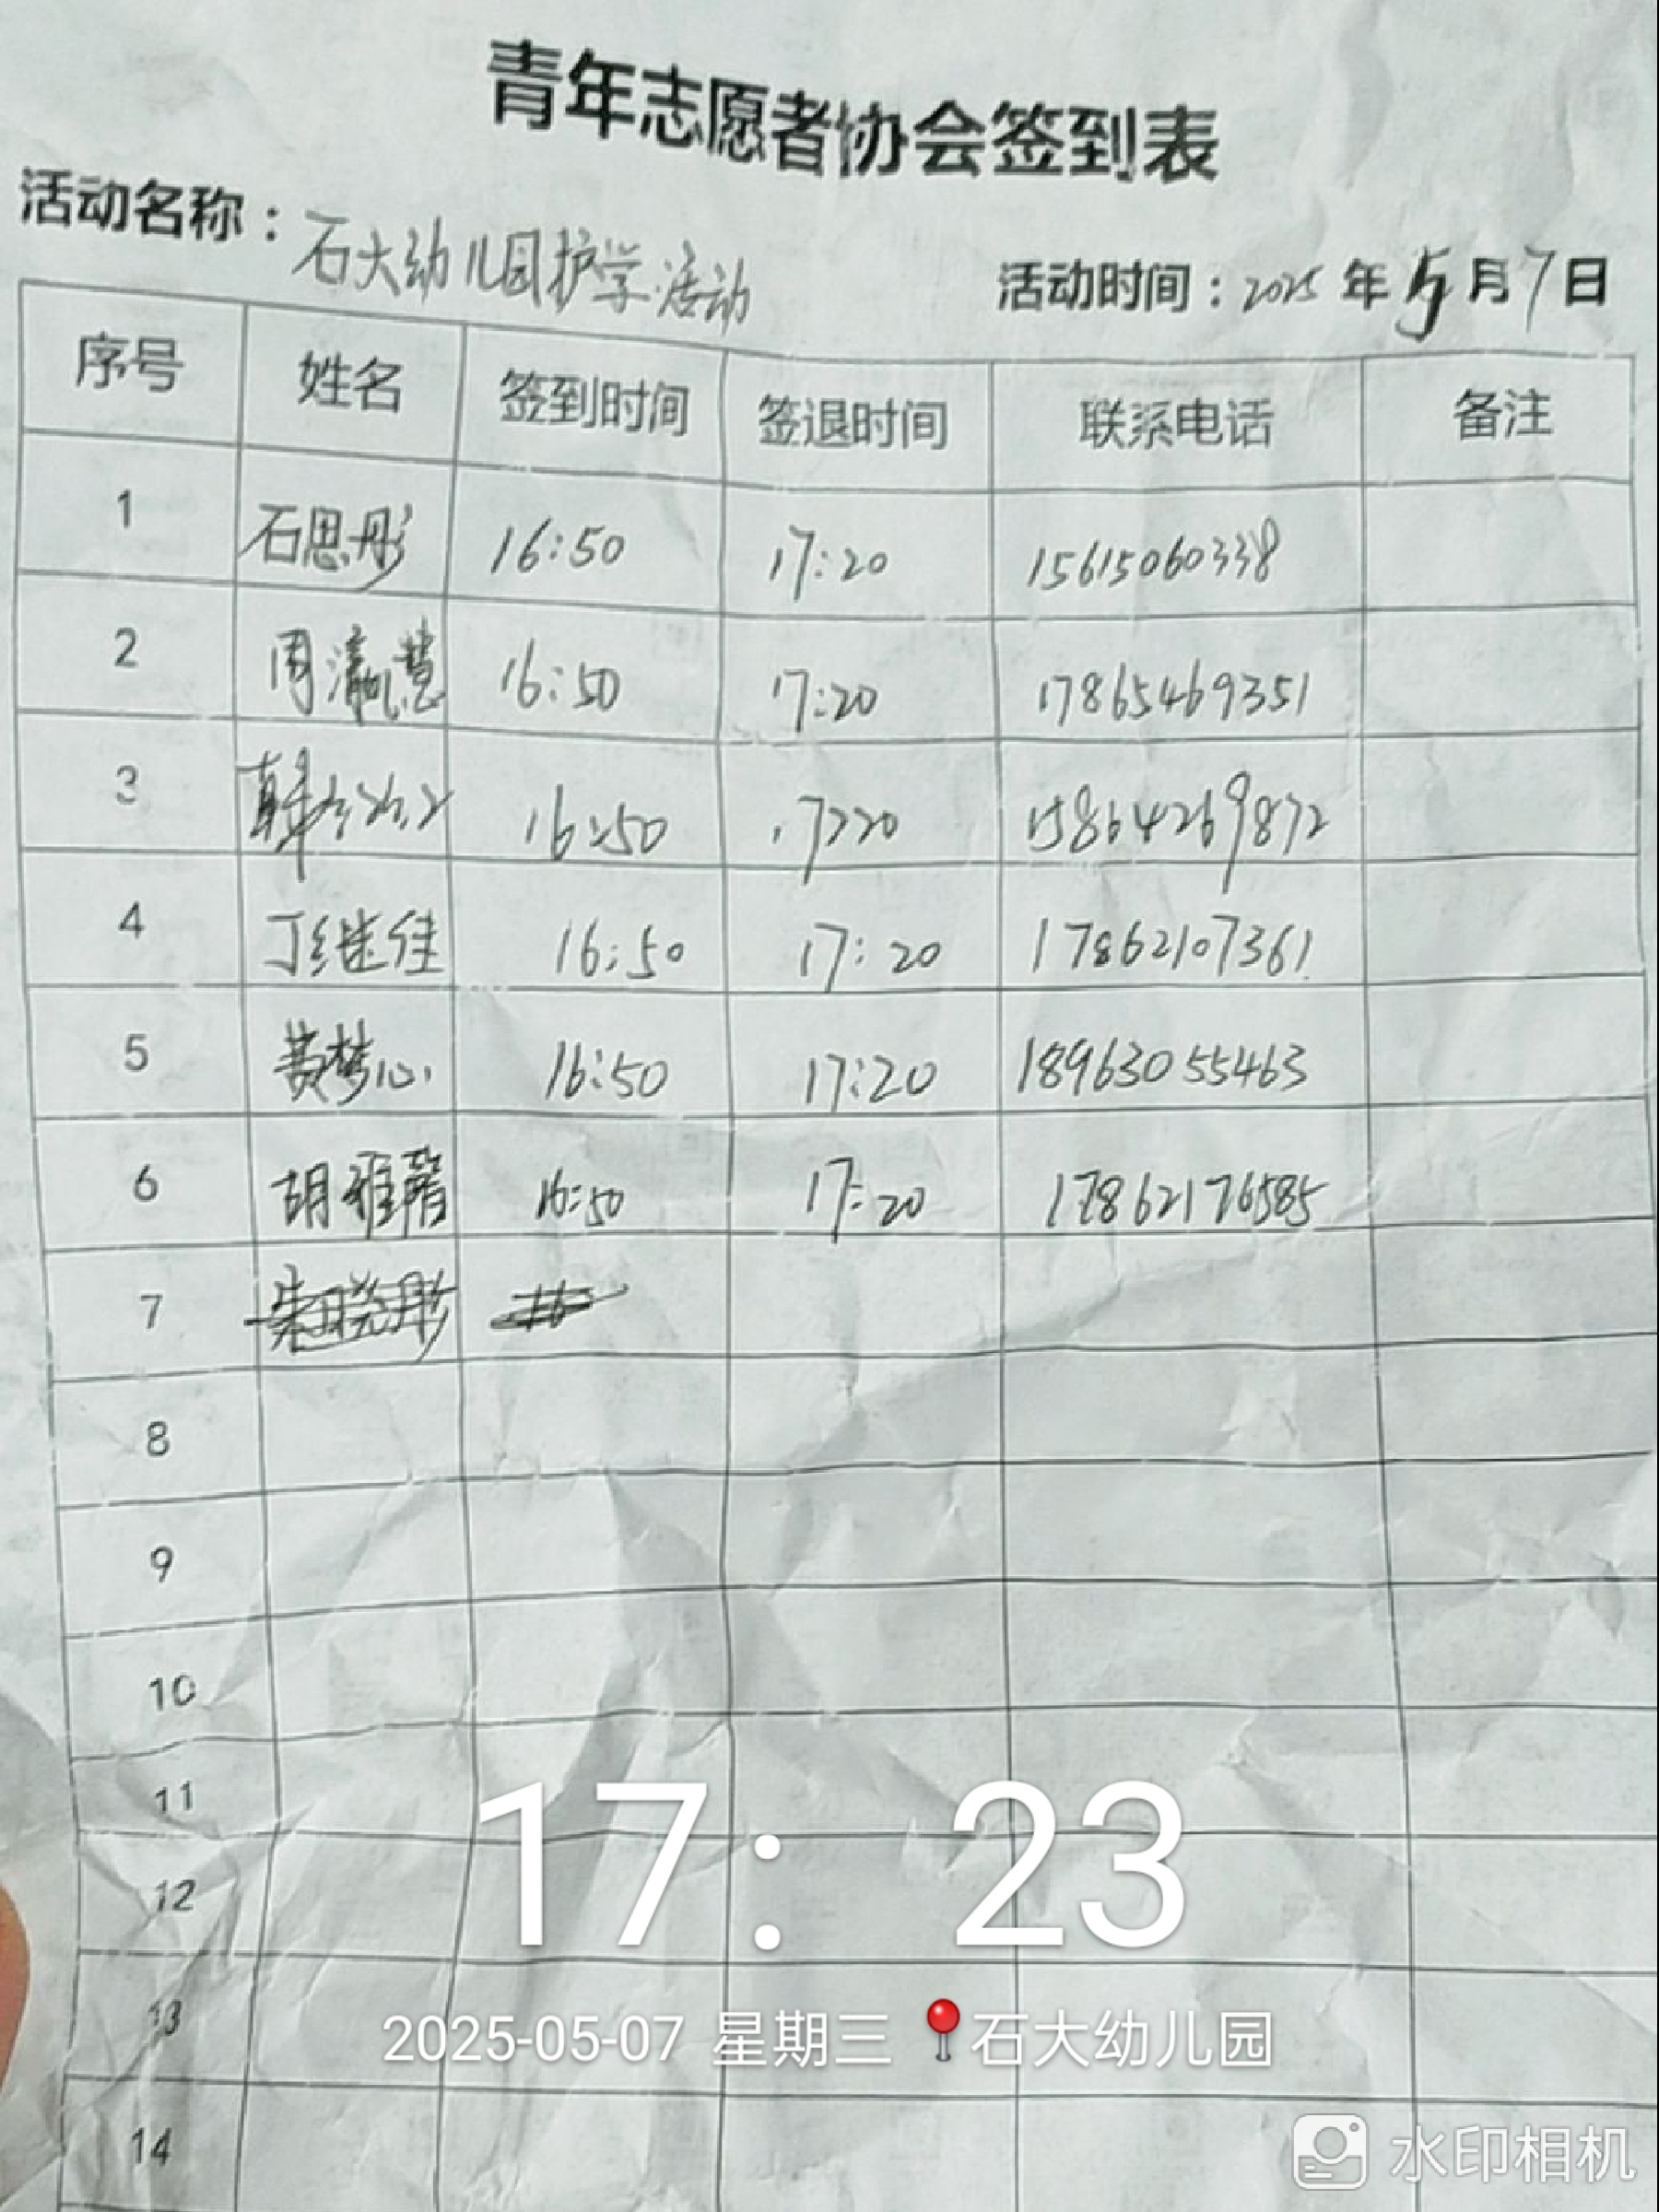 青年志愿者协会签到表
活动名称：石大幼儿园护学活动 活动时间：2025年5月7日
序号 姓名 签到时间 签退时间 联系电话 备注
1 石思彤 16:50 17:20 15615060338
2 周瀛慧 16:50 17:20 17865469351
3 韩 16:50 17:20 15864269872
4 丁继佳 16:50 17:20 17862107361
5 黄梦心 16:50 17:20 18963055463
6 胡雅馨 16:50 17:20 17862176585
7 朱晓彤 16
8
9
10
11
12
13
14
17:23
2025-05-07 星期三 石大幼儿园
水印相机